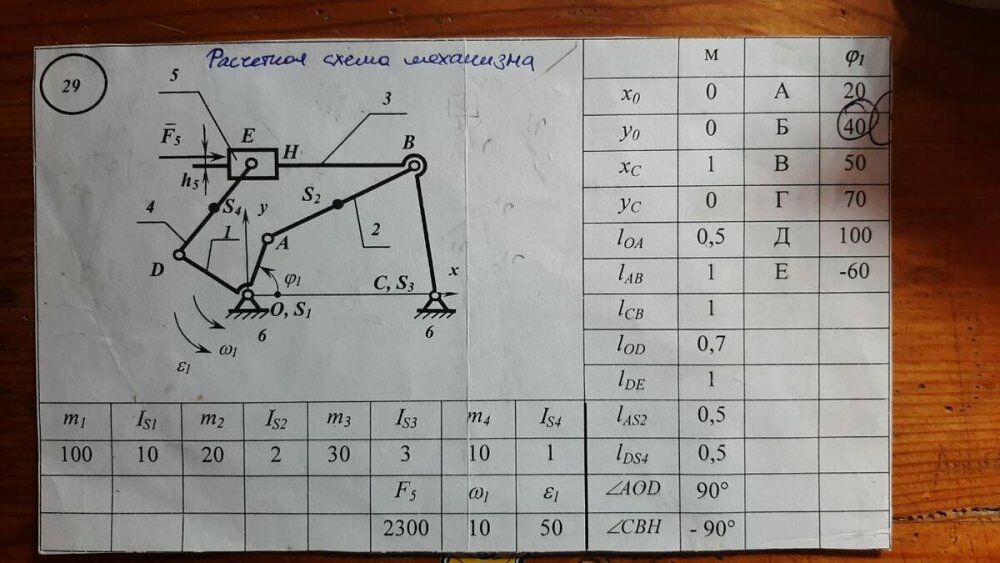 29
Расчетная схема механизма
5
3
F̅5
E
H
B
h5
S2
4
S4
y
1
A
2
D
φ1
C, S3
x
O, S1
6
6
ω1
ε1
м φ1
x0 0 А 20
y0 0 Б 40
xC 1 В 50
yC 0 Г 70
lOA 0,5 Д 100
lAB 1 Е -60
lCB 1
lOD 0,7
lDE 1
lAS2 0,5
lDS4 0,5
∠AOD 90°
∠CBH - 90°
m1 IS1 m2 IS2 m3 IS3 m4 IS4
100 10 20 2 30 3 10 1
F5 ω1 ε1
2300 10 50